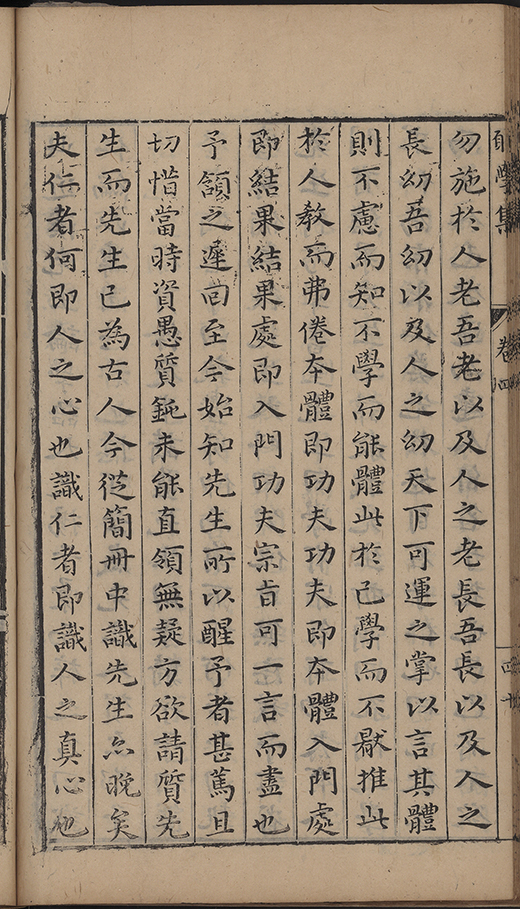 學集
卷四
四十
勿施於人老吾老以及人之老長吾長以及人之
長幼吾幼以及人之幼天下可運之掌以言其體
則不慮而知不學而能體此於己學而不厭推此
於人教而弗倦本體即功夫功夫即本體入門處
即結果結果處即入門功夫宗旨可一言而盡也
予頷之遲回至今始知先生所以醒予者甚篤且
切惜當時資愚質鈍未能直領無疑方欲請質先
生而先生已為古人今從簡冊中識先生亦晚矣
夫仁者何即人之心也識仁者即識人之真心也